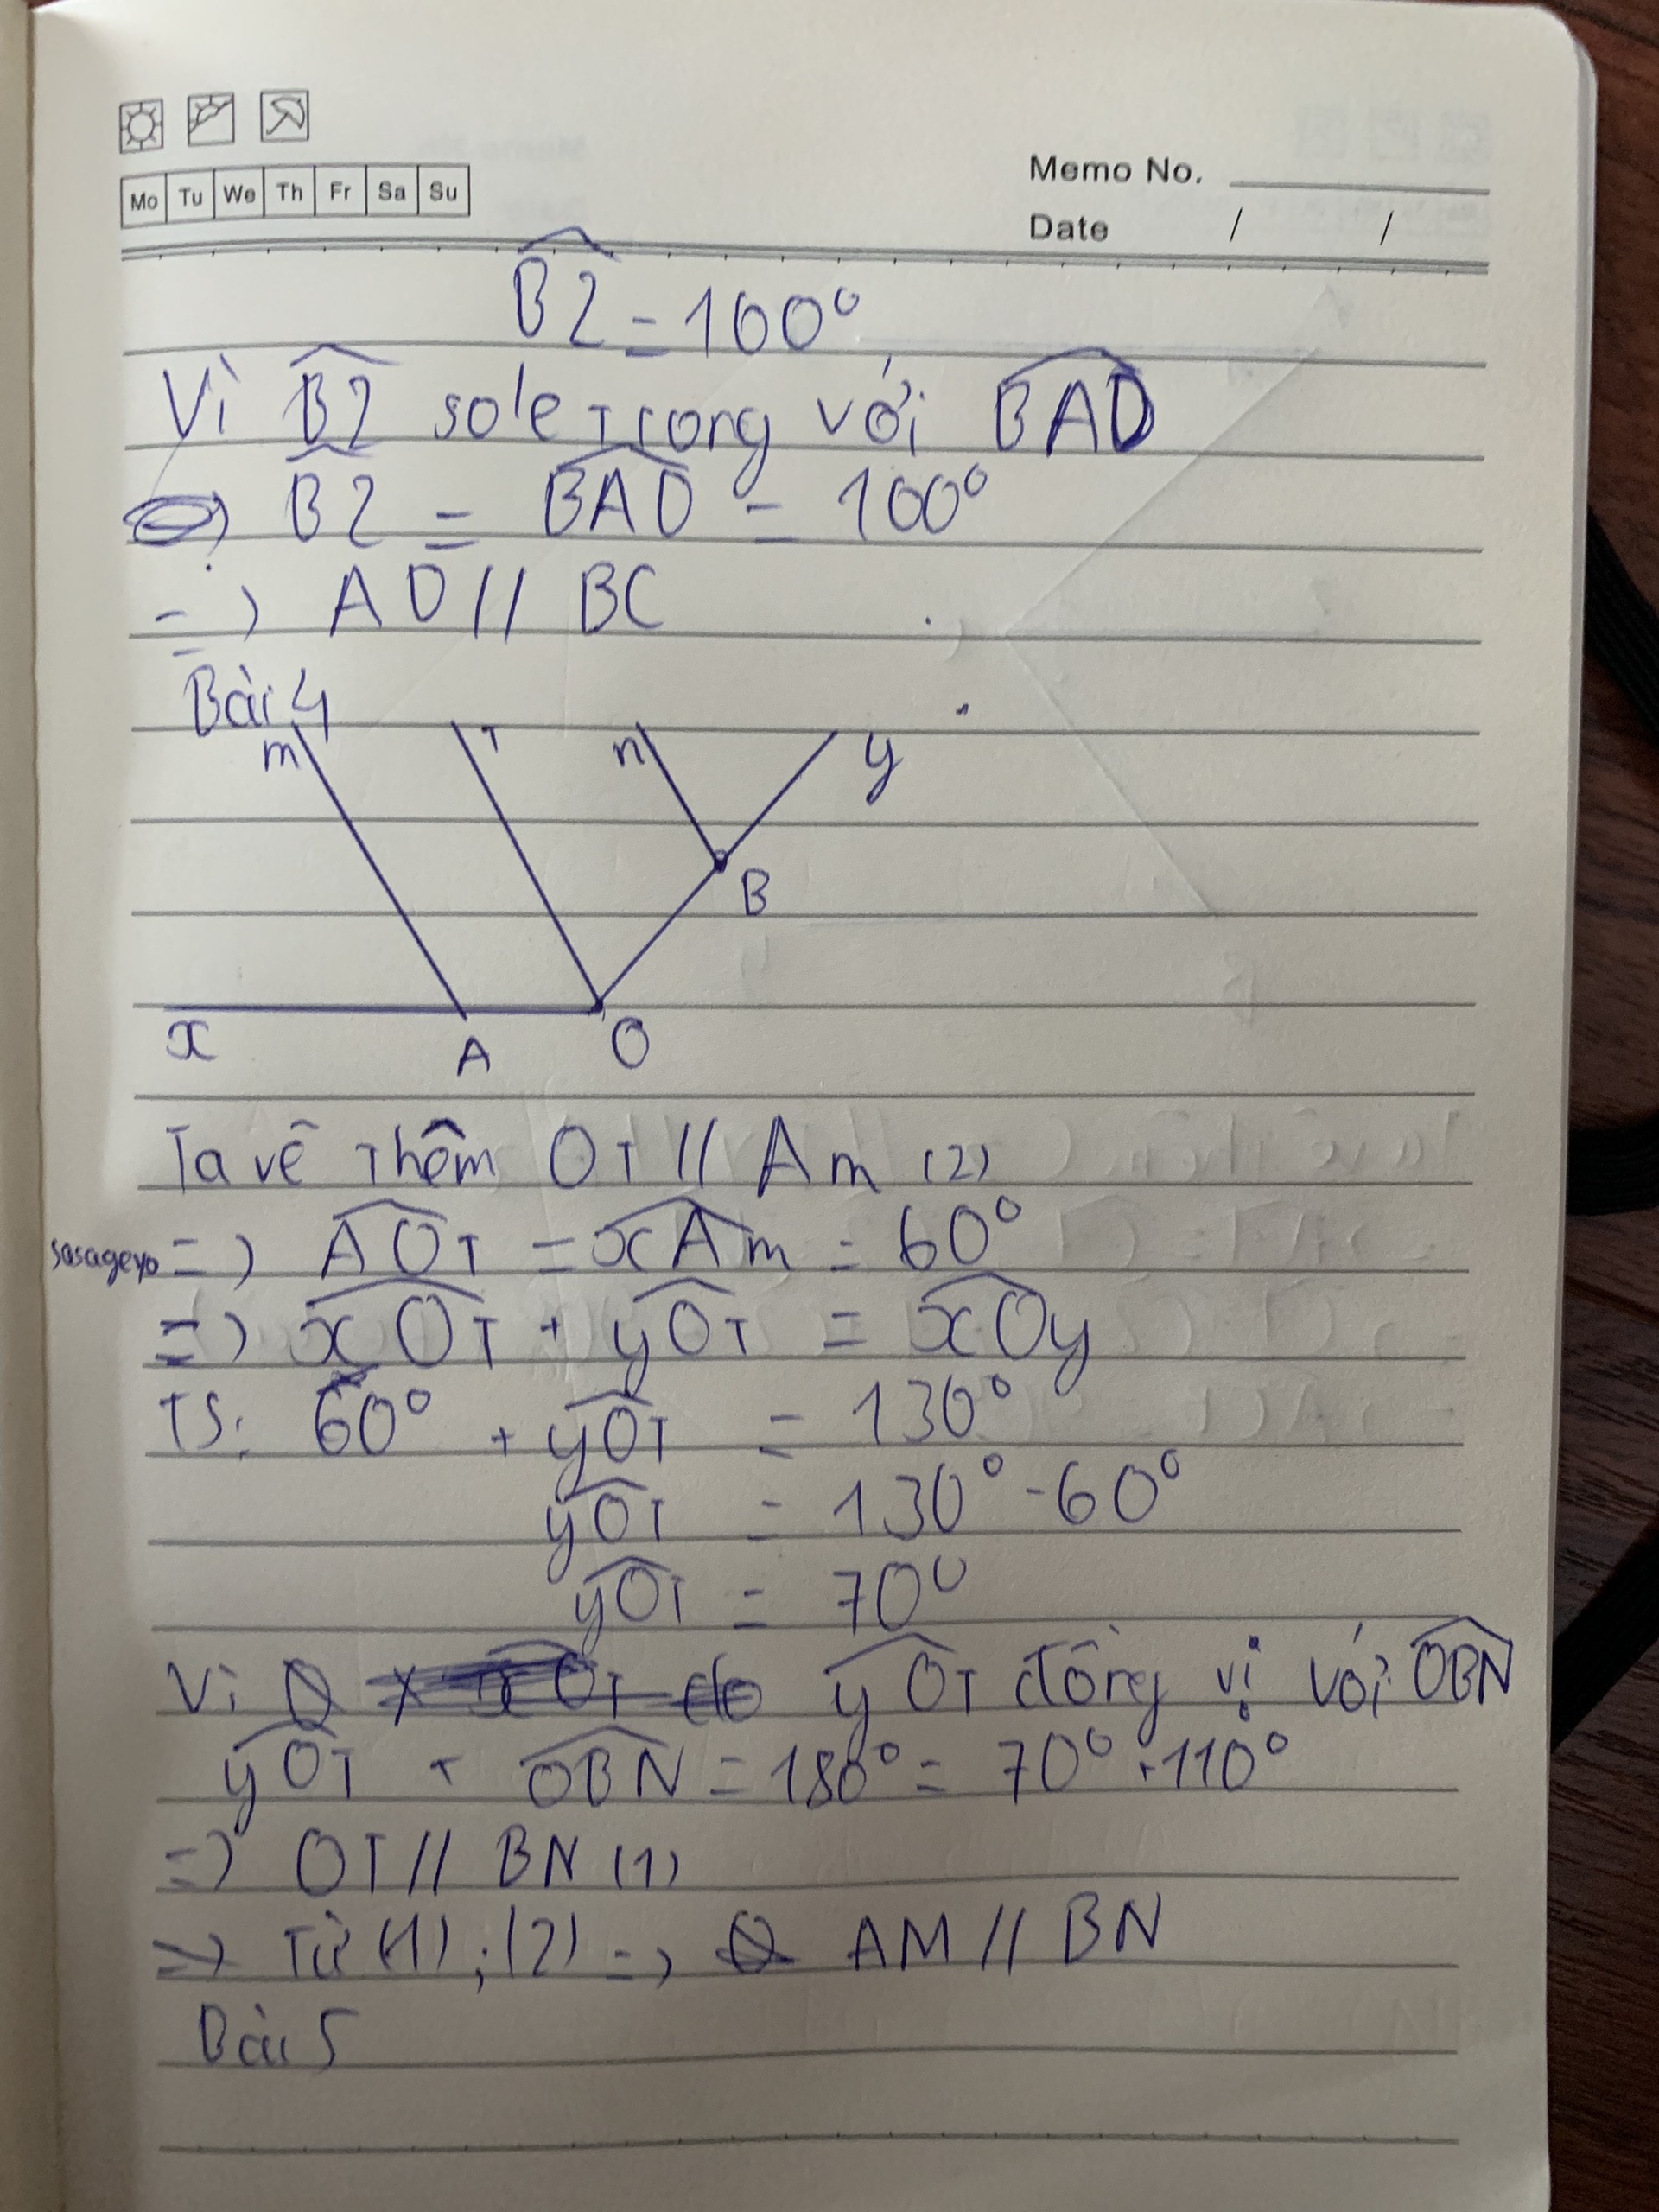 Mo Tu We Th Fr Sa Su
Memo No.
Date / /
B2 = 100°
Vì B2 sole trong với BAD
B2 = BAD = 100°
=> AD // BC
Bài 4
m T n y
B
x A O
Ta vẽ thêm OT // Am (2)
sasageyo => AOT = xAm = 60°
=> xOT + yOT = xOy
TS: 60° + yOT = 130°
yOT = 130° - 60°
yOT = 70°
Vì yOT đồng vị với OBN
yOT + OBN = 180° = 70° + 110°
=> OT // BN (1)
=> Từ (1) ; (2) => AM // BN
Bài 5